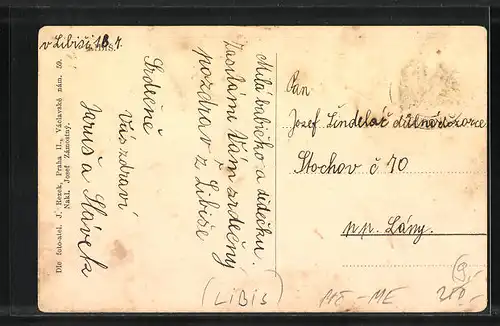 v Libiši 18. 7.
Libiš.
Milá babičko a dědečku.
Zasílám Vám srdečný
pozdrav z Libiše
Srdečně
Vás zdraví
Jaruš a Slávek
Dle foto-atel. J. Rezek, Praha II., Václavské nám. 59.
Nakl. Josef Zámostný.
Pan
Josef Šindelář důlní dozorce
Stochov č 70
pp. Lány.
(LIBIŠ)
ME - ME